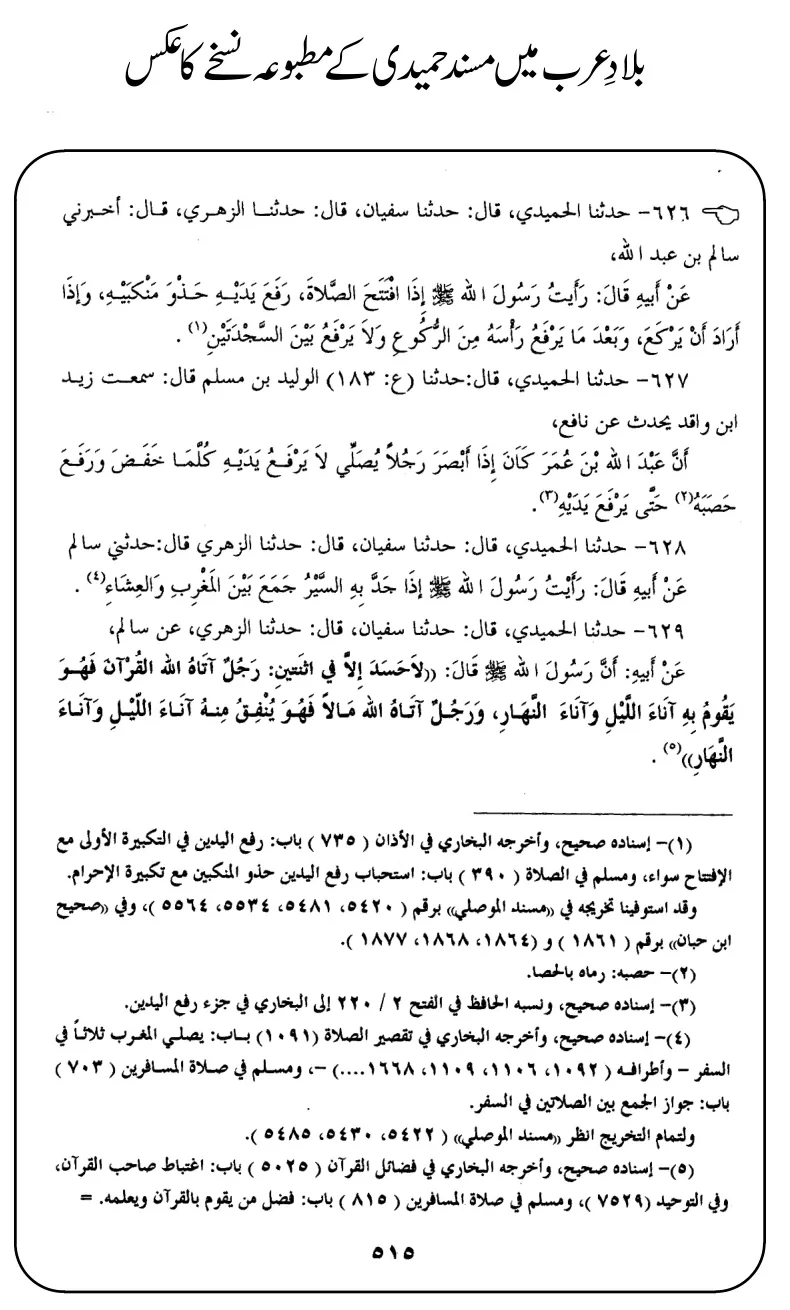 بلادِ عرب میں مسند حمیدی کے مطبوعہ نسخے کا عکس
٦٢٦- حدثنا الحميدي، قال: حدثنا سفيان، قال: حدثنا الزهري، قال: أخبرني
سالم بن عبد الله،
عَنْ أَبِيهِ قَالَ: رَأَيتُ رَسُولَ الله ﷺ إِذَا افْتَتَحَ الصَّلاةَ، رَفَعَ يَدَيْهِ حَذْوَ مَنْكِبَيْهِ، وَإِذَا
أَرَادَ أَنْ يَرْكَعَ، وَبَعْدَ مَا يَرْفَعُ رَأْسَهُ مِنَ الرُّكُوعِ وَلاَ يَرْفَعُ بَيْنَ السَّجْدَتَيْنِ(١).
٦٢٧- حدثنا الحميدي، قال:حدثنا (ع: ١٨٣) الوليد بن مسلم قال: سمعت زيد
ابن واقد يحدث عن نافع،
أَنَّ عَبْدَ الله بْنَ عُمَرَ كَانَ إِذَا أَبْصَرَ رَجُلاً يُصَلِّي لاَ يَرْفَعُ يَدَيْهِ كُلَّمَا خَفَضَ وَرَفَعَ
حَصَبَهُ(٢) حَتَّى يَرْفَعَ يَدَيْهِ(٣).
٦٢٨- حدثنا الحميدي، قال: حدثنا سفيان، قال: حدثنا الزهري قال:حدثني سالم
عَنْ أَبِيهِ قَالَ: رَأَيْتُ رَسُولَ الله ﷺ إِذَا جَدَّ بِهِ السَّيْرُ جَمَعَ بَيْنَ المَغْرِبِ وَالعِشَاءِ(٤).
٦٢٩- حدثنا الحميدي، قال: حدثنا سفيان، قال: حدثنا الزهري، عن سالم،
عَنْ أَبِيهِ: أَنَّ رَسُولَ الله ﷺ قَالَ: ((لاَحَسَدَ إِلاَّ فِي اثْنَتَينِ: رَجُلٌ آتَاهُ الله القُرْآنَ فَهُوَ
يَقُومُ بِهِ آنَاءَ اللَّيْلِ وَآنَاءَ النَّهَارِ، وَرَجُلٌ آتَاهُ الله مَالاً فَهُوَ يُنْفِقُ مِنهُ آنَاءَ اللّيْلِ وَآنَاءَ
النَّهَارِ))(٥).
(١)- إسناده صحيح، وأخرجه البخاري في الأذان ( ٧٣٥ ) باب: رفع اليدين في التكبيرة الأولى مع
الإفتتاح سواء، ومسلم في الصلاة ( ٣٩٠ ) باب: استحباب رفع اليدين حذو المنكبين مع تكبيرة الإحرام.
وقد استوفينا تخريجه في «مسند الموصلي» برقم ( ٥٤٢٠، ٥٤٨١، ٥٥٣٤، ٥٥٦٤ )، وفي «صحيح
ابن حبان» برقم ( ١٨٦١ ) و (١٨٦٤، ١٨٦٨، ١٨٧٧ ).
(٢)- حصبه: رماه بالحصا.
(٣)- إسناده صحيح، ونسبه الحافظ في الفتح ٢ / ٢٢٠ إلى البخاري في جزء رفع اليدين.
(٤)- إسناده صحيح، وأخرجه البخاري في تقصير الصلاة (١٠٩١) باب: يصلي المغرب ثلاثاً في
السفر – وأطرافه ( ١٠٩٢، ١١٠٦، ١١٠٩، ١٦٦٨....) –، ومسلم في صلاة المسافرين ( ٧٠٣ )
باب: جواز الجمع بين الصلاتين في السفر.
ولتمام التخريج انظر «مسند الموصلي» ( ٥٤٢٢، ٥٤٣٠، ٥٤٨٥ ).
(٥)- إسناده صحيح، وأخرجه البخاري في فضائل القرآن ( ٥٠٢٥ ) باب: اغتباط صاحب القرآن،
وفي التوحيد (٧٥٢٩ )، ومسلم في صلاة المسافرين ( ٨١٥ ) باب: فضل من يقوم بالقرآن ويعلمه. =
٥١٥